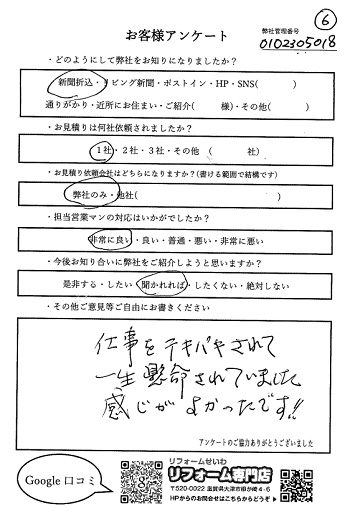 ⑥
お客様アンケート
弊社管理番号
0102305018
・どのようにして弊社をお知りになりましたか？
新聞折込・リビング新聞・ポストイン・HP・SNS( )
通りがかり・近所にお住まい・ご紹介( 様)・その他( )
・お見積りは何社依頼されましたか？
1社・2社・3社・その他 ( 社)
・お見積り依頼会社はどちらになりますか？(書ける範囲で結構です)
弊社のみ・他社( )
・担当営業マンの対応はいかがでしたか？
非常に良い・良い・普通・悪い・非常に悪い
・今後お知り合いに弊社をご紹介しようと思いますか？
是非する・したい・聞かれれば・したくない・絶対しない
・その他ご意見等ご自由にお書きください
仕事をテキパキされて
一生懸命されていました
感じがよかったです!!
アンケートのご協力ありがとうございました
Google 口コミ
リフォームせいわ
リフォーム専門店
〒520-0022 滋賀県大津市柳が崎4-6
HPからのお問合せはこちらからどうぞ